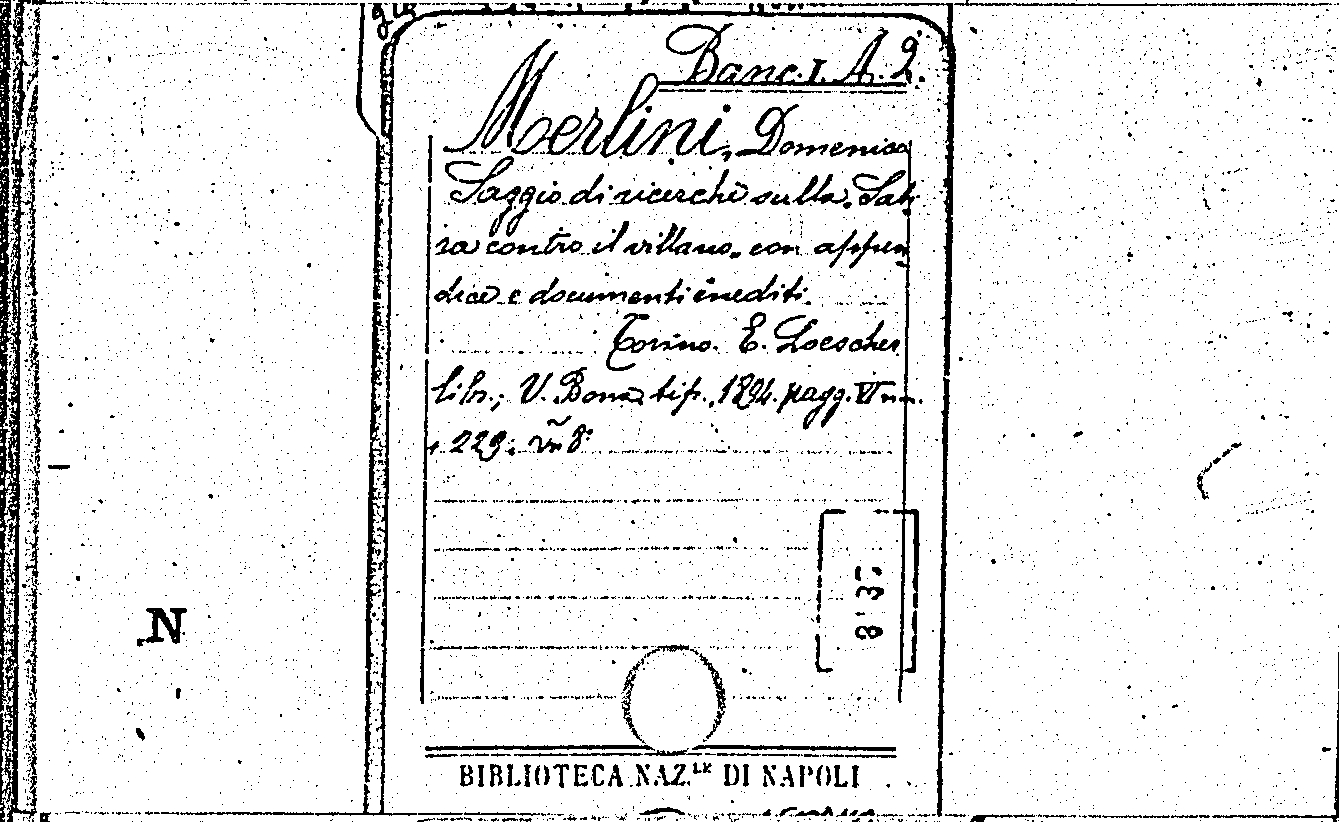 Banc. I. A. 2.
Merlini, Domenico
Saggio di ricerche sulla Sati-
ra contro il villano, con appen-
dice e documenti inediti.
Torino. E. Loescher
libr.; V. Bona tip., 1894. pagg. VI nn.
+ 229; in 8°
N
BIBLIOTECA NAZ.LE DI NAPOLI